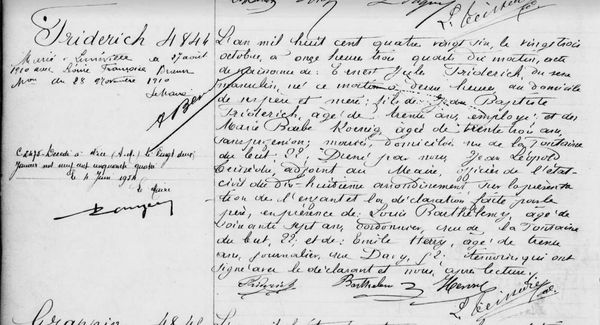 Friderich 4844
Marié à Lunéville le 17 août
1910 avec Louise Françoise Braun
Avis du 28 Novembre 1910
C 2475. Décédé à Nice (A.-M.) le vingt deux
Janvier mil neuf cent cinquante quatre
Le 4 Juin 1954
L'an mil huit cent quatre vingt six, le vingt trois
octobre, à onze heures trois quarts du matin, acte
de naissance de: Ernest Jules Friderich, du sexe
masculin, né ce matin à deux heures au domicile
de ses père et mère; fils de: Jean Baptiste
Friderich, âgé de trente ans, employé; et de:
Marie Barbe Koenig, âgée de trente trois ans,
sans profession; mariés, domiciliés rue de la Fontaine
du but, 22; Dressé par nous, Jean Léopold
Teissèdre, adjoint au Maire, officier de l'état-
civil du dix-huitième arrondissement, sur la présenta-
tion de l'enfant et la déclaration faite par le
père, en présence de: Louis Barthélemy, âgé de
soixante sept ans, cordonnier, rue de la Fontaine
du but, 22; et de: Emile Henry, âgé de trente
ans, journalier, rue Davy, témoins qui ont
signé avec le déclarant et nous, après lecture.
Friderich Barthélemy Henry
L. Teissèdre